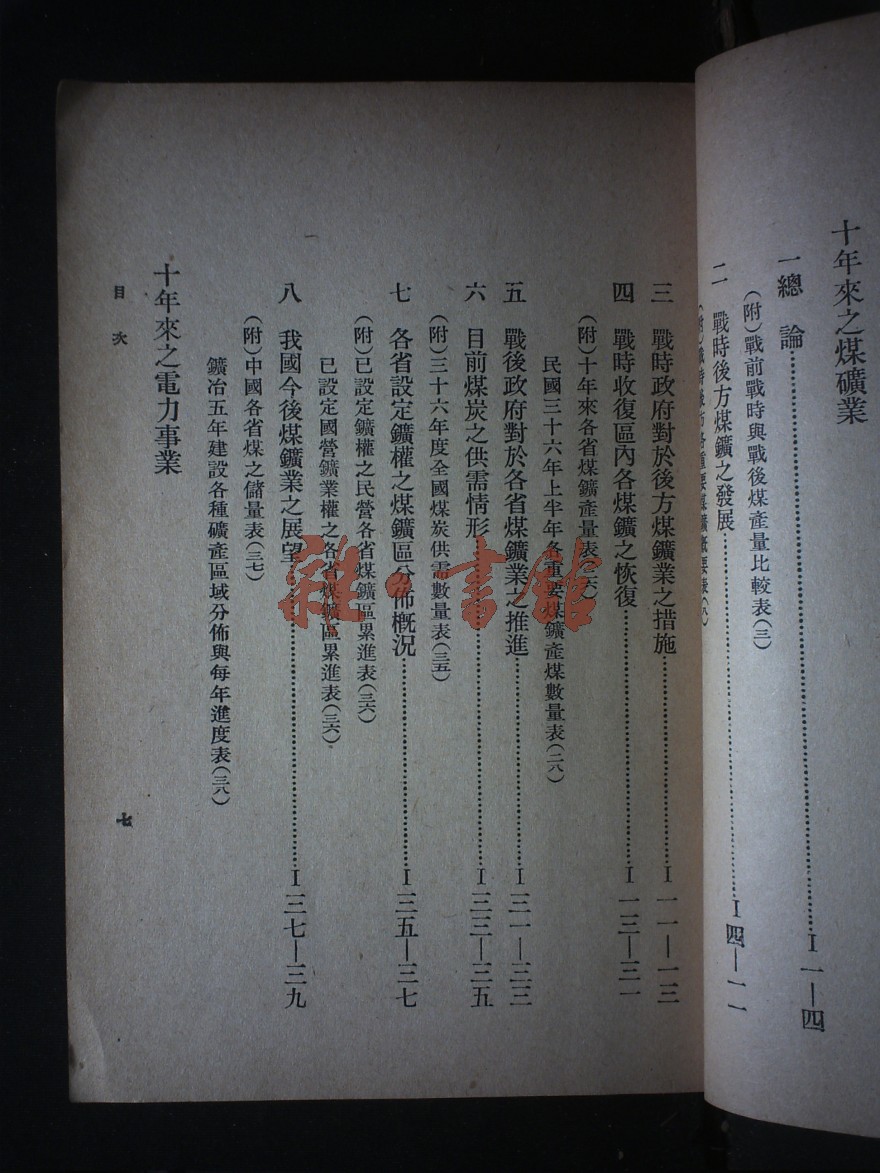 十年來之煤礦業
一 總論……I 一—四
(附)戰前戰時與戰後煤產量比較表(三)
二 戰時後方煤鑛之發展……I 四—一一
(附)戰時後方各重要煤鑛概要表(八)
三 戰時政府對於後方煤鑛業之措施……I 一一—一三
四 戰時收復區內各煤鑛之恢復……I 一三—三一
(附)十年來各省煤鑛產量表(二六)
民國三十六年上半年各重要煤鑛產煤數量表(二八)
五 戰後政府對於各省煤鑛業之推進……I 三一—三三
六 目前煤炭之供需情形……I 三三—三五
(附)三十六年度全國煤炭供需數量表(三五)
七 各省設定鑛權之煤鑛區分佈概況……I 三五—三七
(附)已設定鑛權之民營各省煤鑛區累進表(三六)
已設定國營鑛業權之各省煤鑛區累進表(三六)
八 我國今後煤鑛業之展望……I 三七—三九
(附)中國各省煤之儲量表(三七)
鑛冶五年建設各種礦產區域分佈與每年進度表(三八)
十年來之電力事業
目次
七
雜·書館